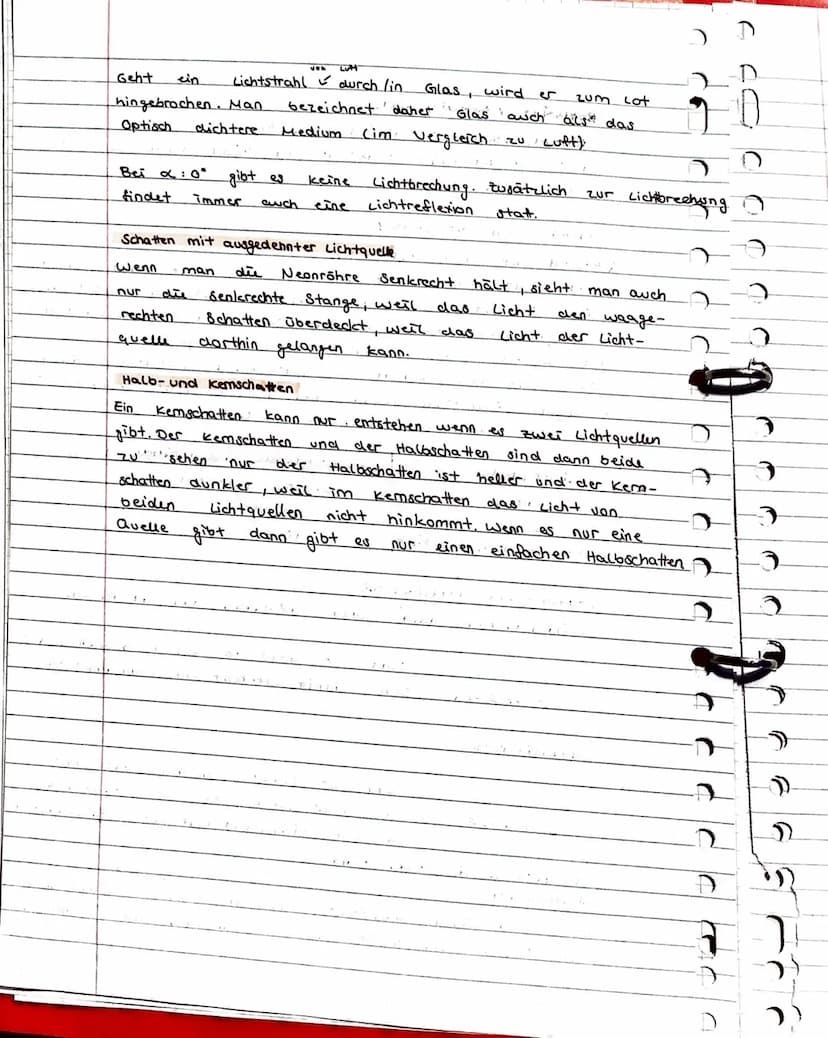 von Luft
Geht ein Lichtstrahl ✓ durch/in Glas, wird er zum Lot
hingebrochen. Man bezeichnet daher Glas auch als das
Optisch dichtere Medium (im Vergleich zu Luft).
Bei α:0° gibt es keine Lichtbrechung. Zusätzlich zur Lichtbrechung
findet immer auch eine Lichtreflexion statt.
Schatten mit ausgedennter Lichtquelle
Wenn man die Neonröhre senkrecht hält, sieht man auch
nur die senkrechte Stange, weil das Licht den waage-
rechten Schatten überdeckt, weil das Licht der Licht-
quelle dorthin gelangen kann.
Halb- und Kernschatten
Ein Kernschatten kann nur entstehen wenn es zwei Lichtquellen
gibt. Der Kernschatten und der Halbschatten sind dann beide
zu sehen nur der Halbschatten ist heller und der Kern-
schatten dunkler, weil im Kernschatten das Licht von
beiden Lichtquellen nicht hinkommt. Wenn es nur eine
Quelle gibt dann gibt es nur einen einfachen Halbschatten